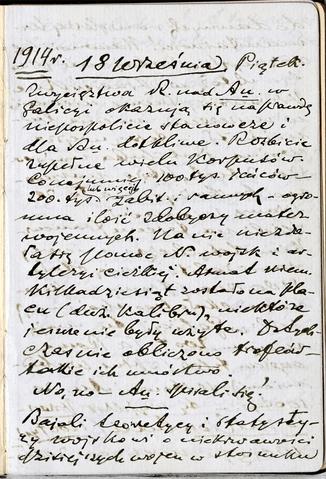 1914 r. 18 Września. Piątek.
Zwycięstwa R. nad Au. w
Galicyi okazują się naprawdę
niepospolicie stanowcze i
dla Au. dotkliwe. Rozbicie
zupełne wielu korpusów
Conajmniej 100 tys. jeńców
lub więcej
200 tys. zabit. i rannych – ogro-
mna ilość zdobyczy mater.
wojennych. Na nic nie zda-
ła się pomoc N. wojsk i ar-
tyleryi ciężkiej. Armat niem.
kilkadziesiąt zostało na pla-
cu (duż. kalibru), niektóre
i czasie były użyte. Dotych-
czasnie obliczono trofeów
takie ich mnóstwo
No, no – Au. spisali się!
Bajali teoretycy i statysty-
cy wojskowi o niekrwawości
dzisiejszych wojen w stosunku